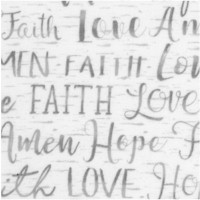 Faith Love Am
MEN FAITH Lov
e FAITH Love
Amen Hope F
ith LOVE Ho